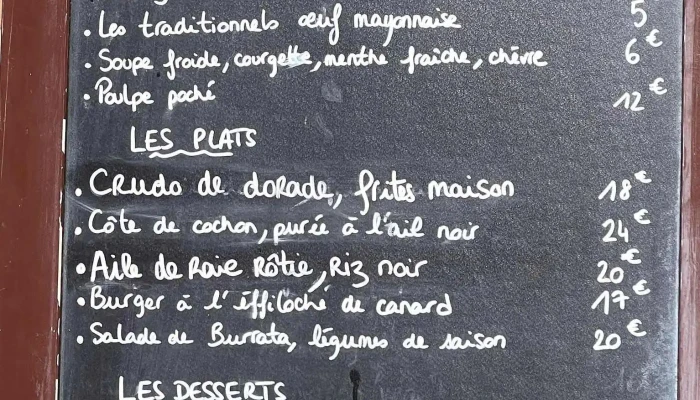 . Les traditionnels œuf mayonnaise 5
. Soupe froide, courgette, menthe fraîche, chèvre 6€
. Poulpe poché 12€
LES PLATS
. CRudo de dorade, frites maison 18€
. Côte de cochon, purée à l'ail noir 24€
. Aile de Raie Rôtie, Riz noir 20€
. Burger à l'éffiloché de canard 17€
. Salade de Burrata, légumes de saison 20€
LES DESSERTS